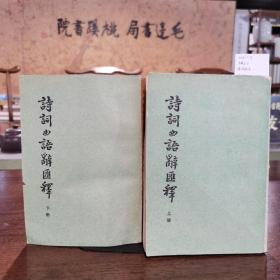 毛達書局 桃蹊書院
詩詞曲語辭匯釋
下冊
詩詞曲語辭匯釋
上冊